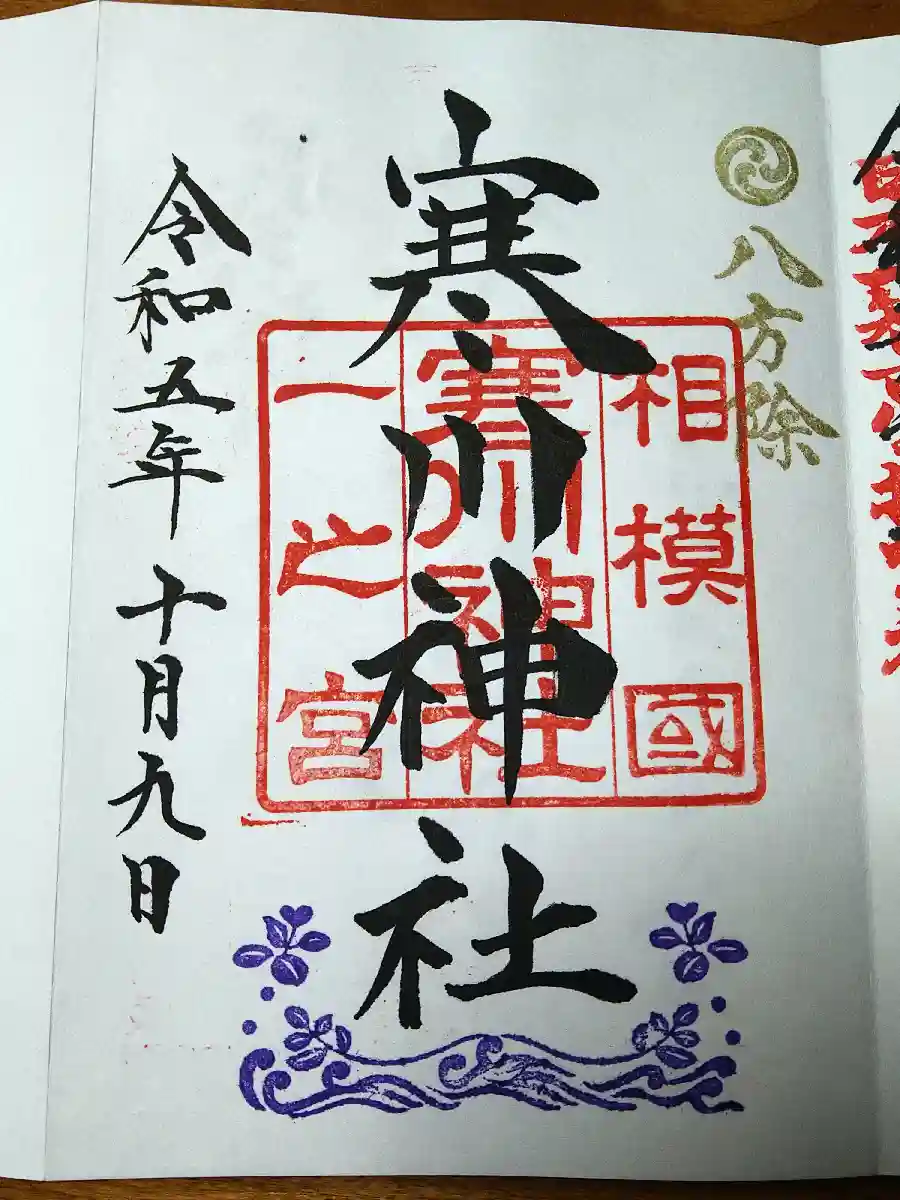 八方除
相模國
寒川神社
寒川神社
一之宮
令和五年十月九日